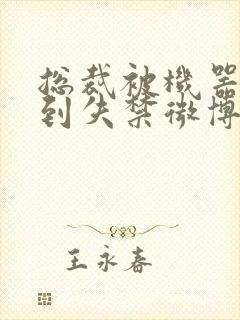 总裁被機器
到失禁微博
王永春